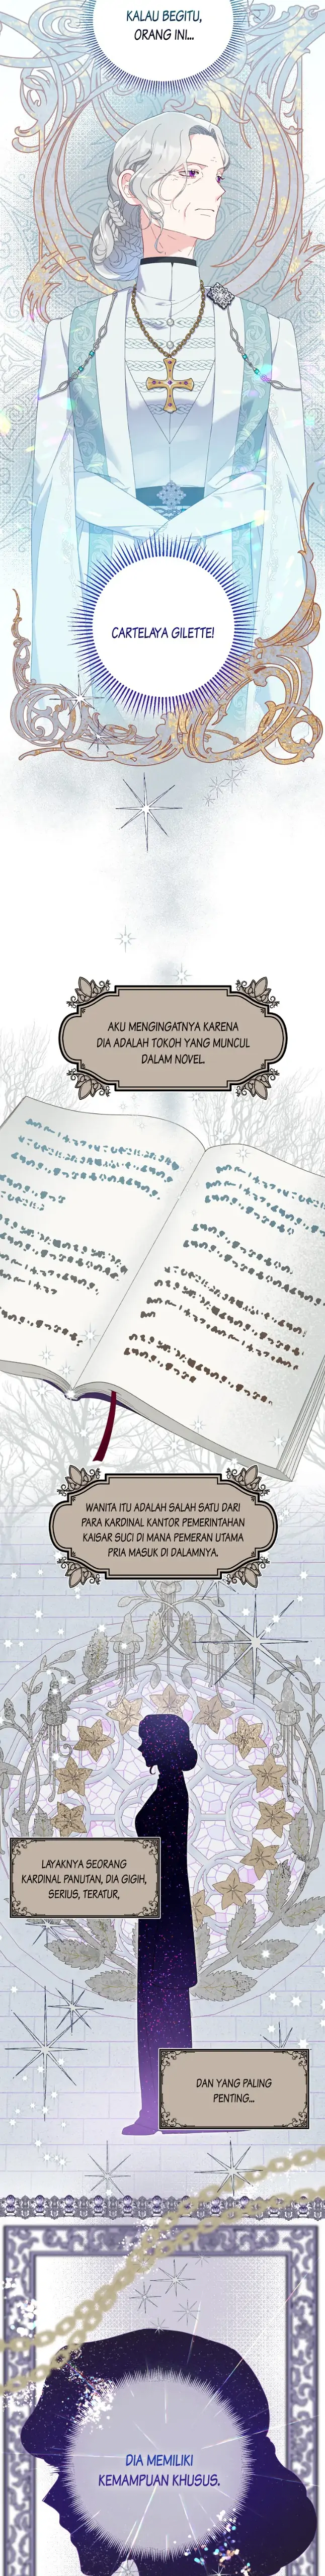 KALAU BEGITU,
ORANG INI...
CARTELAYA GILETTE!
AKU MENGINGATNYA KARENA
DIA ADALAH TOKOH YANG MUNCUL
DALAM NOVEL.
WANITA ITU ADALAH SALAH SATU DARI
PARA KARDINAL KANTOR PEMERINTAHAN
KAISAR SUCI DI MANA PEMERAN UTAMA
PRIA MASUK DI DALAMNYA.
LAYAKNYA SEORANG
KARDINAL PANUTAN, DIA GIGIH,
SERIUS, TERATUR,
DAN YANG PALING
PENTING...
DIA MEMILIKI
KEMAMPUAN KHUSUS.